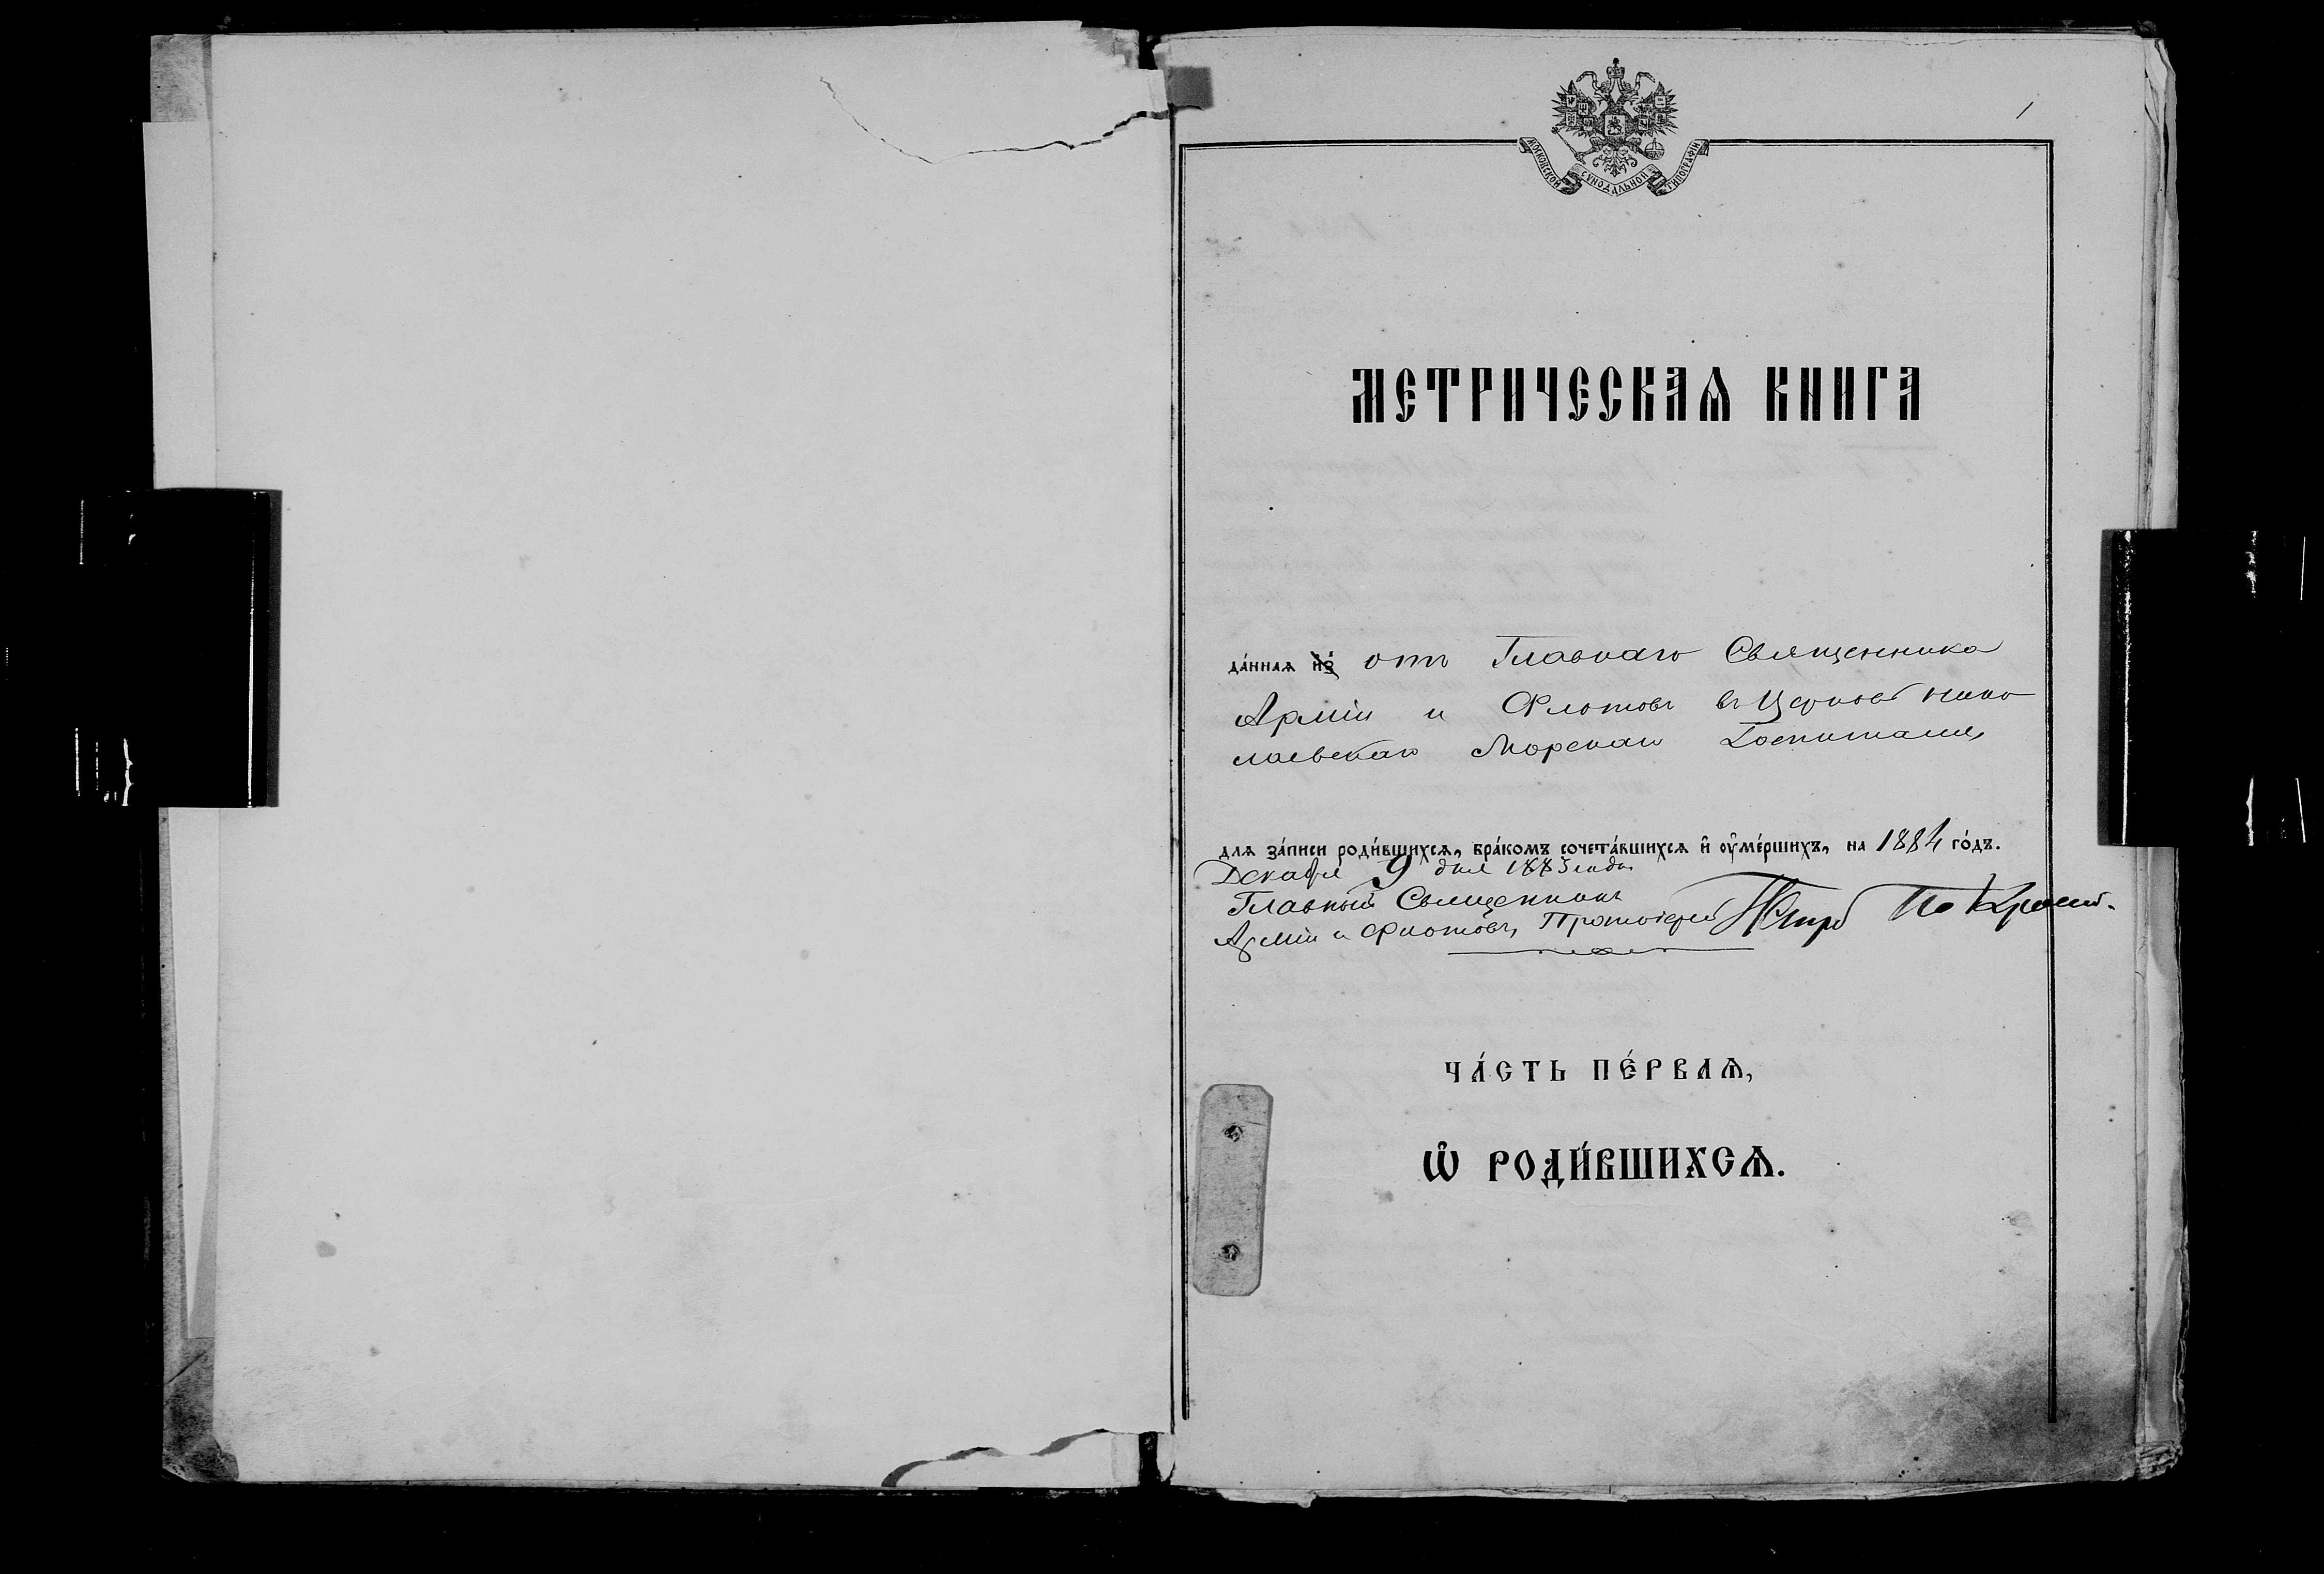 1
МОСКОВСКОЙ СѴНОДАЛЬНОЙ ТИПОГРАФІИ
МЕТРИЧЕСКАѦ КНИГА
да́ннаѧ из̾ отъ Главнаго Священника
Арміи и Флотовъ въ Церковь Нико
лаевскаго Морскаго Госпиталя,
длѧ за́писи роди́вшихсѧ, бра́комъ сочета́вшихсѧ и҆ оу҆ме́ршихъ, на 1884 го́дъ.
Декабря 9 дня 1883 года
Главный Священникъ
Арміи и Флотовъ, Протоіерей Петръ Покровскій.
ЧА́СТЬ ПЕ́РВАѦ,
Ѽ РОДИ́ВШИХСѦ.